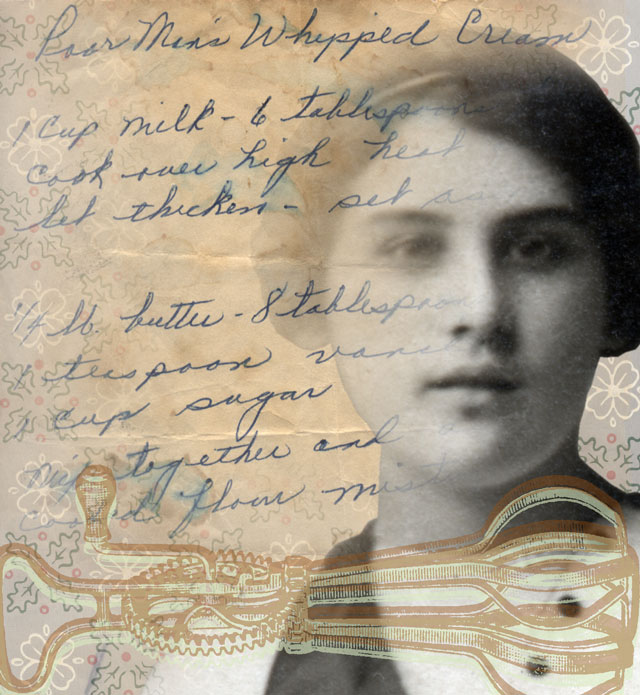 Poor Man's Whipped Cream
1 Cup milk - 6 tablespoons
cook over high heat
let thicken - set as
1/4 lb. butter - 8 tablespoon
1 teaspoon
1 cup sugar
mix together and
flour